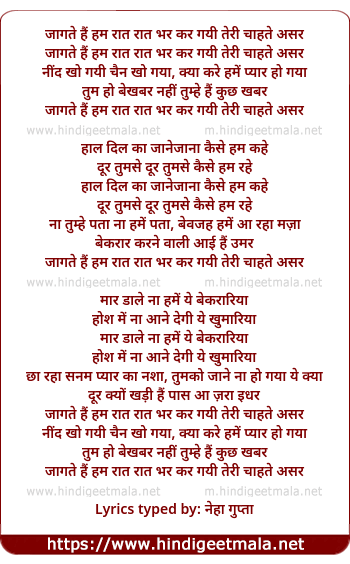 जागते हैं हम रात रात भर कर गयी तेरी चाहते असर
जागते हैं हम रात रात भर कर गयी तेरी चाहते असर
नींद खो गयी चैन खो गया, क्या करे हमें प्यार हो गया
तुम हो बेखबर नहीं तुम्हे हैं कुछ खबर
जागते हैं हम रात रात भर कर गयी तेरी चाहते असर
www.hindigeetmala.net m.hindigeetmala.net
हाल दिल का जानेजाना कैसे हम कहे
दूर तुमसे दूर तुमसे कैसे हम रहे
हाल दिल का जानेजाना कैसे हम कहे
दूर तुमसे दूर तुमसे कैसे हम रहे
ना तुम्हे पता ना हमें पता, बेवजह हमें आ रहा मज़ा
बेकरार करने वाली आई हैं उमर
जागते हैं हम रात रात भर कर गयी तेरी चाहते असर
www.hindigeetmala.net m.hindigeetmala.net
मार डाले ना हमें ये बेकरारिया
होश में ना आने देगी ये खुमारिया
मार डाले ना हमें ये बेकरारिया
होश में ना आने देगी ये खुमारिया
छा रहा सनम प्यार का नशा, तुमको जाने ना हो गया ये क्या
दूर क्यों खड़ी हैं पास आ ज़रा इधर
जागते हैं हम रात रात भर कर गयी तेरी चाहते असर
नींद खो गयी चैन खो गया, क्या करे हमें प्यार हो गया
तुम हो बेखबर नहीं तुम्हे हैं कुछ खबर
जागते हैं हम रात रात भर कर गयी तेरी चाहते असर
www.hindigeetmala.net m.hindigeetmala.net
Lyrics typed by: नेहा गुप्ता
https://www.hindigeetmala.net